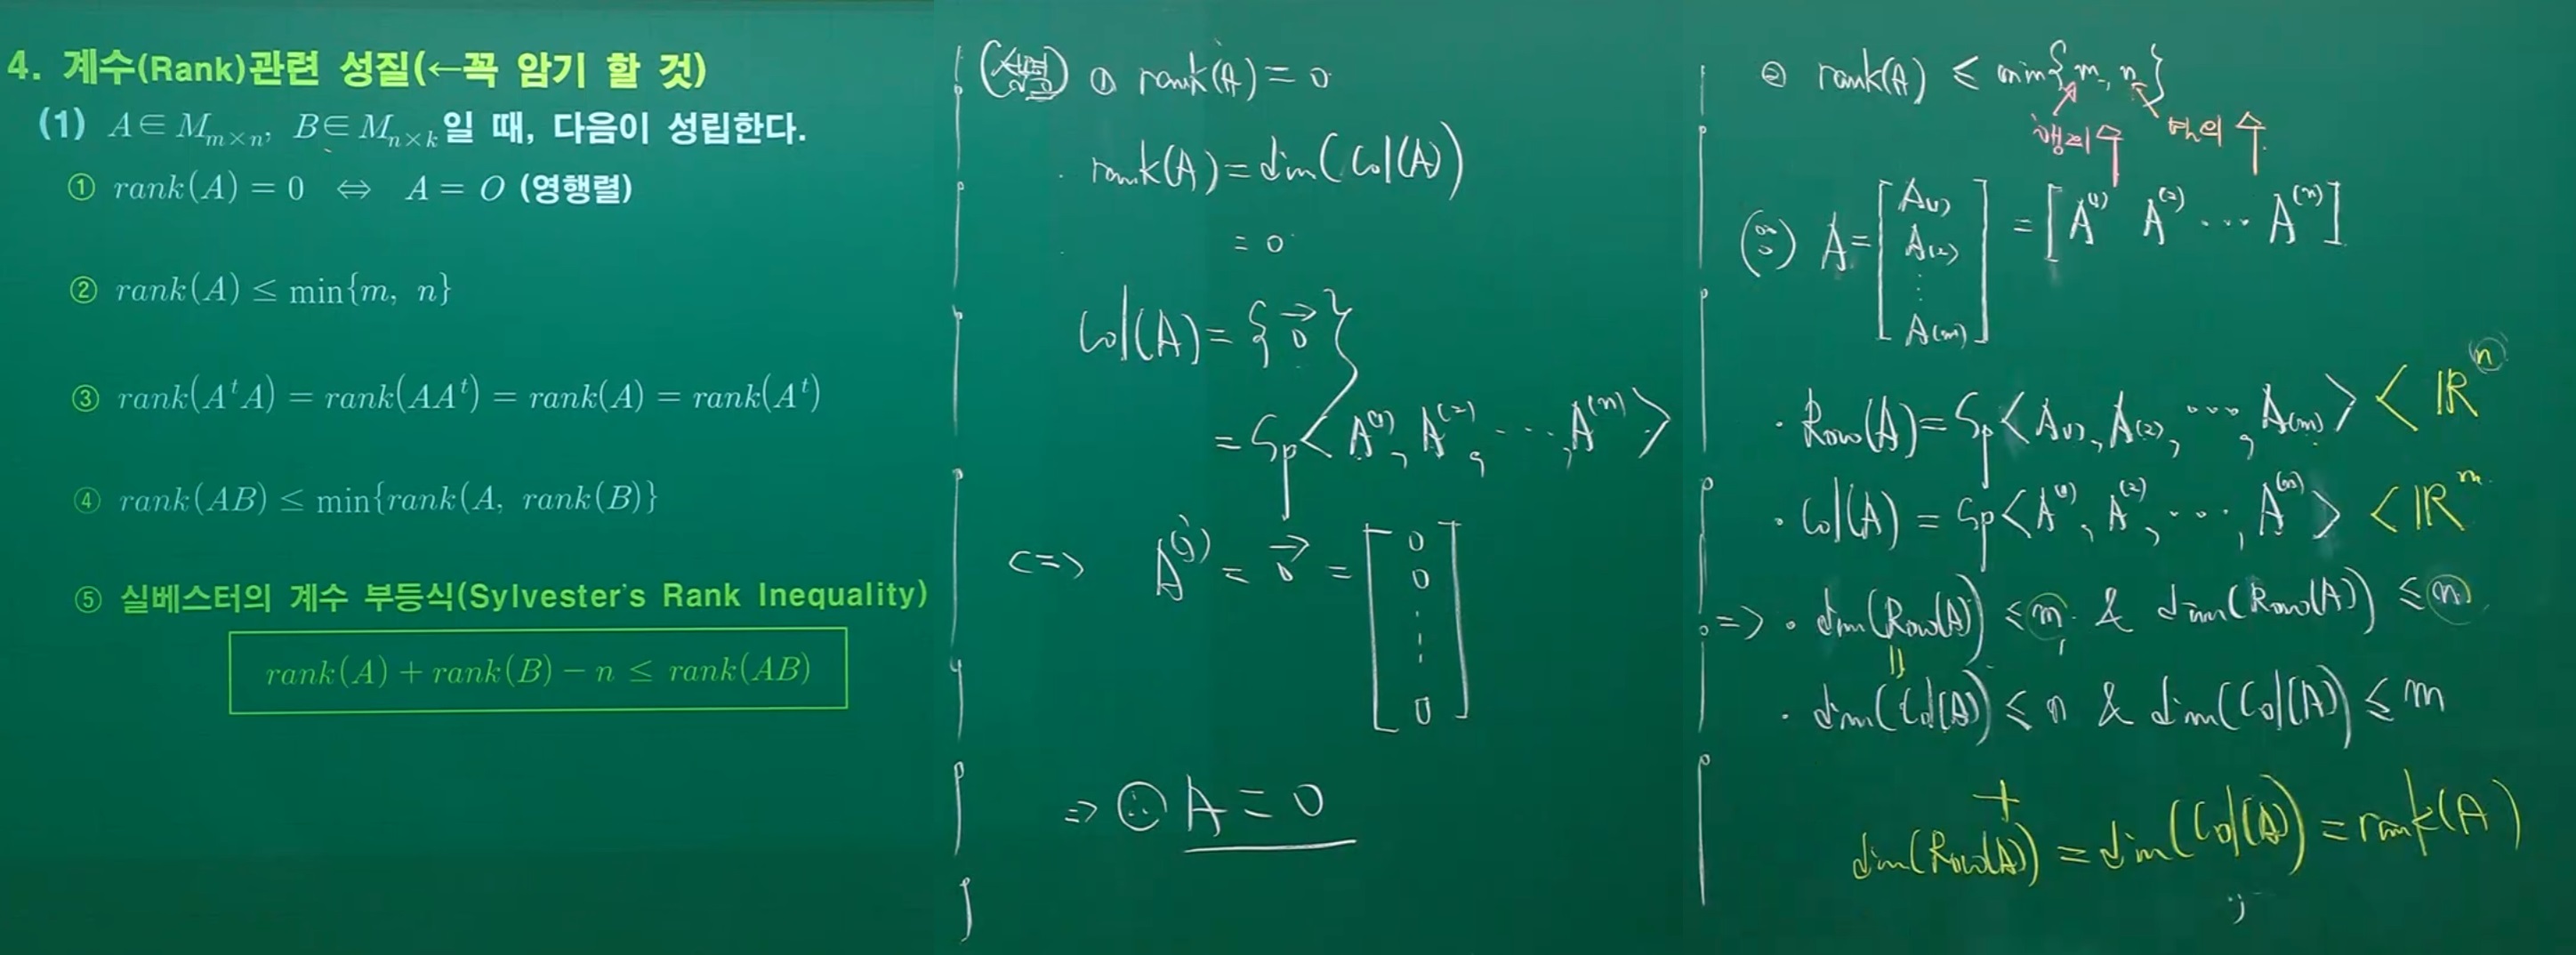 4. 계수(Rank)관련 성질(←꼭 암기 할 것)
(1) A∈M_{m×n}, B∈M_{n×k}일 때, 다음이 성립한다.
① rank(A) = 0 ⇔ A = O (영행렬)
② rank(A) ≤ min{m, n}
③ rank(AᵗA) = rank(AAᵗ) = rank(A) = rank(Aᵗ)
④ rank(AB) ≤ min{rank(A, rank(B)}
⑤ 실베스터의 계수 부등식(Sylvester's Rank Inequality)
rank(A) + rank(B) − n ≤ rank(AB)
(설명) ① rank(A) = 0
· rank(A) = dim(Col(A))
= 0
Col(A) = {0⃗}
= Sp<A⁽¹⁾, A⁽²⁾, ⋯, A⁽ⁿ⁾>
<=> A⁽ʲ⁾ = 0⃗ = [0 0 ⋮ 0]
=> ∴ A = 0
② rank(A) ≤ min{m, n}
행의 수 열의 수
(∵) A = [A₍₁₎ A₍₂₎ ⋮ A₍ₘ₎] = [A⁽¹⁾ A⁽²⁾ ⋯ A⁽ⁿ⁾]
· Row(A) = Sp<A₍₁₎, A₍₂₎, ⋯, A₍ₘ₎> < ℝⁿ
· Col(A) = Sp<A⁽¹⁾, A⁽²⁾, ⋯, A⁽ⁿ⁾> < ℝᵐ
=> · dim(Row(A)) ≤ m, & dim(Row(A)) ≤ n
॥
· dim(Col(A)) ≤ n & dim(Col(A)) ≤ m
+
dim(Row(A)) = dim(Col(A)) = rank(A)